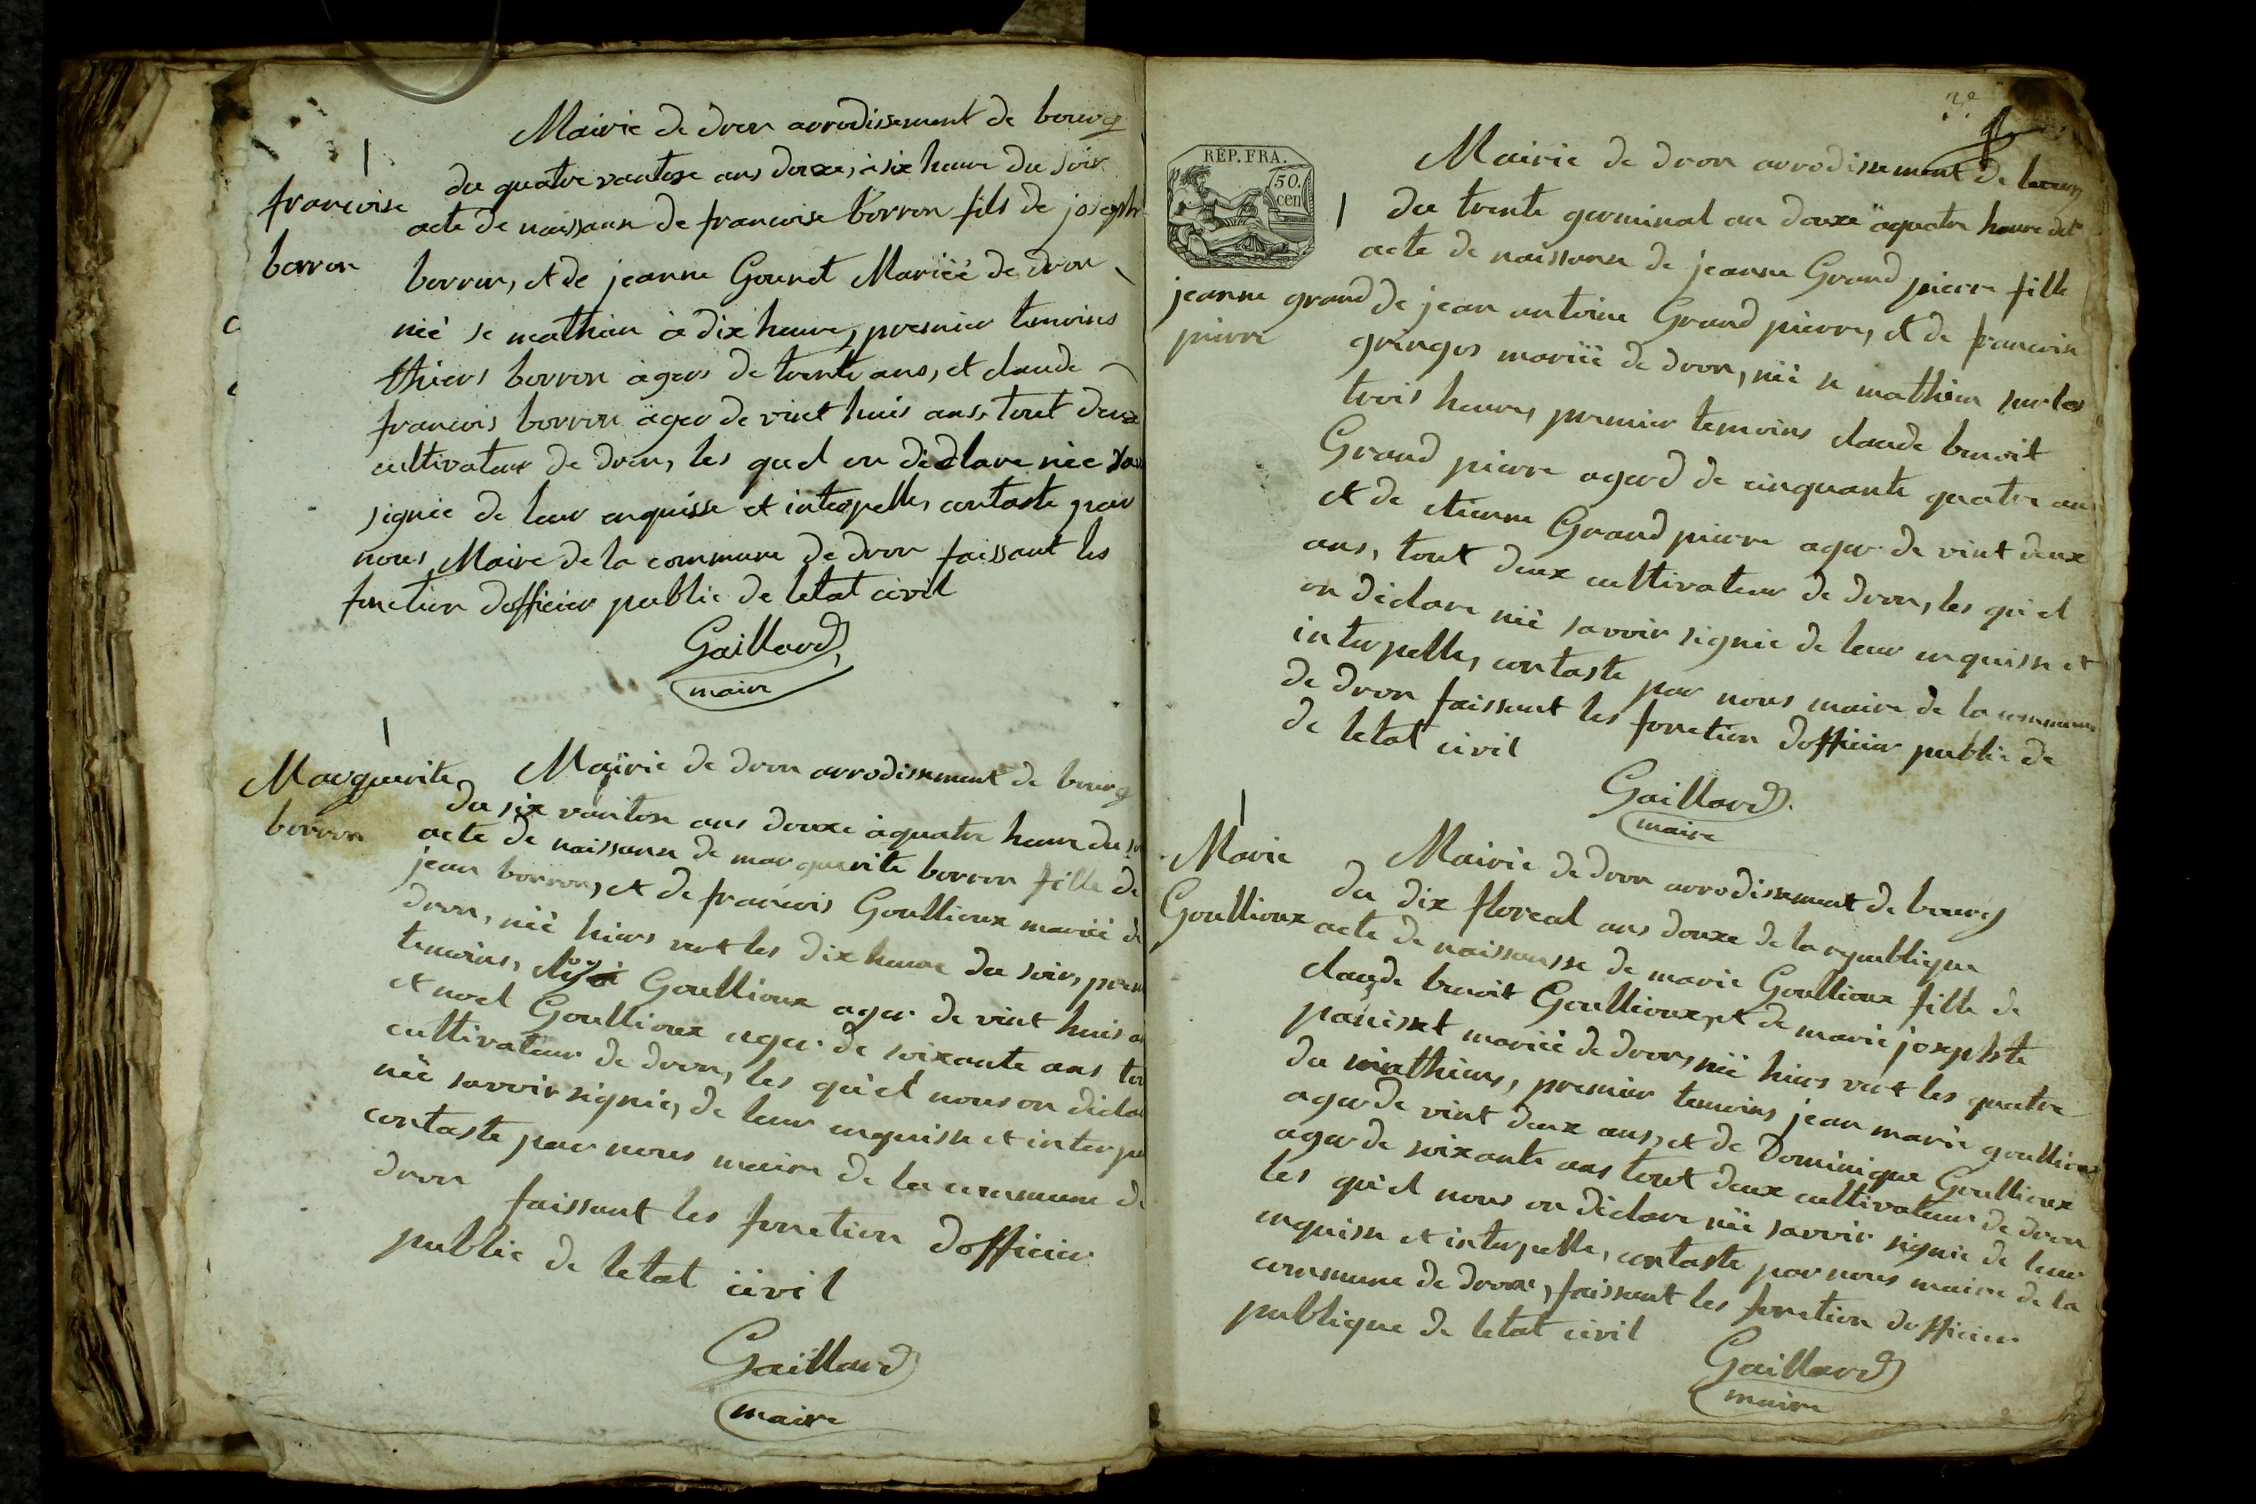 Mairie de dron arrodissement de bourg
françoise
borron
du quatre vantose ans douxe, à six heure du soir
acte de naissanse de francoise borron fils de joseph
borron, et de jeanne Gounet Mariéé de dron
néé se mathien à dix heure, premier temoins
thiers borron àger de trente ans, et claude
francois borron àger de vint huis ans, tout deux
cultivateur de dron, les quel on dedlare néé
signié de leur enquisse et interpelle, contaste par
nous, Maire de la commune de dron faissant les
fonction dofficier public de letat civil
Gaillard
maire
Marguerite
borron
Mairie de dron arrodissement de bourg
du six vantose ans douxe àquatre heure du
acte de naissanse de marguerite borron fille de
jean borron, et de francois Goullioux mariéé de
dron, néé hiers vert les dix heure du soir,
temoins, Goullioux ager de vint huis
et noel Goullioux ager de soixante ans
cultivateur de dron, les qu'el nous on
néé savvoir signié, de leur enquisse et
contaste par nous maire de la commune de
dron faissant les fonction dofficier
public de letat civil
Gaillard
maire
REP. FRA.
50.
cen
Mairie de dron arrodissement de bourg
du trente germinal an douxe àquatre heure
acte de naissanse de jeanne Grand pierre fille
jeanne grand
pierre
de jean antoine Grand pierre, et de francoise
gringos mariéé de dron, néé se mathien sur les
trois heures, premier temoins claude benoit
Grand pierre agerd de cinquante quatre ans
et de etienne Grand pierre ager de vint deux
ans, tout deux cultivateur de dron, les qu'el
on déclare néé savvoir signié de leur enquisse et
interpelle, contaste par nous maire de la commune
de dron faissant les fonction dofficier public de
de letat civil
Gaillard
maire
Marie
Goullioux
Mairie de dron arrodissement de bourg
du dix floreal ans douxe de la republique
acte de naissansse de marie Goullioux fille de
claude benoit Goullioux, et de marie josephte
panisset mariéé de dron, néé hiers vert les quatre
du mathiens, premier temoins jean marie goullioux
ager de vint deux ans, et de Dominique Goullioux
ager de soixante ans tout deux cultivateur de dron
les qu'el nous on déclare néé savvoir signié de leur
enquisse et interpelle, contaste par nous maire de la
commune de dron, faissant les fonction dofficier
publique de letat civil
Gaillard
maire